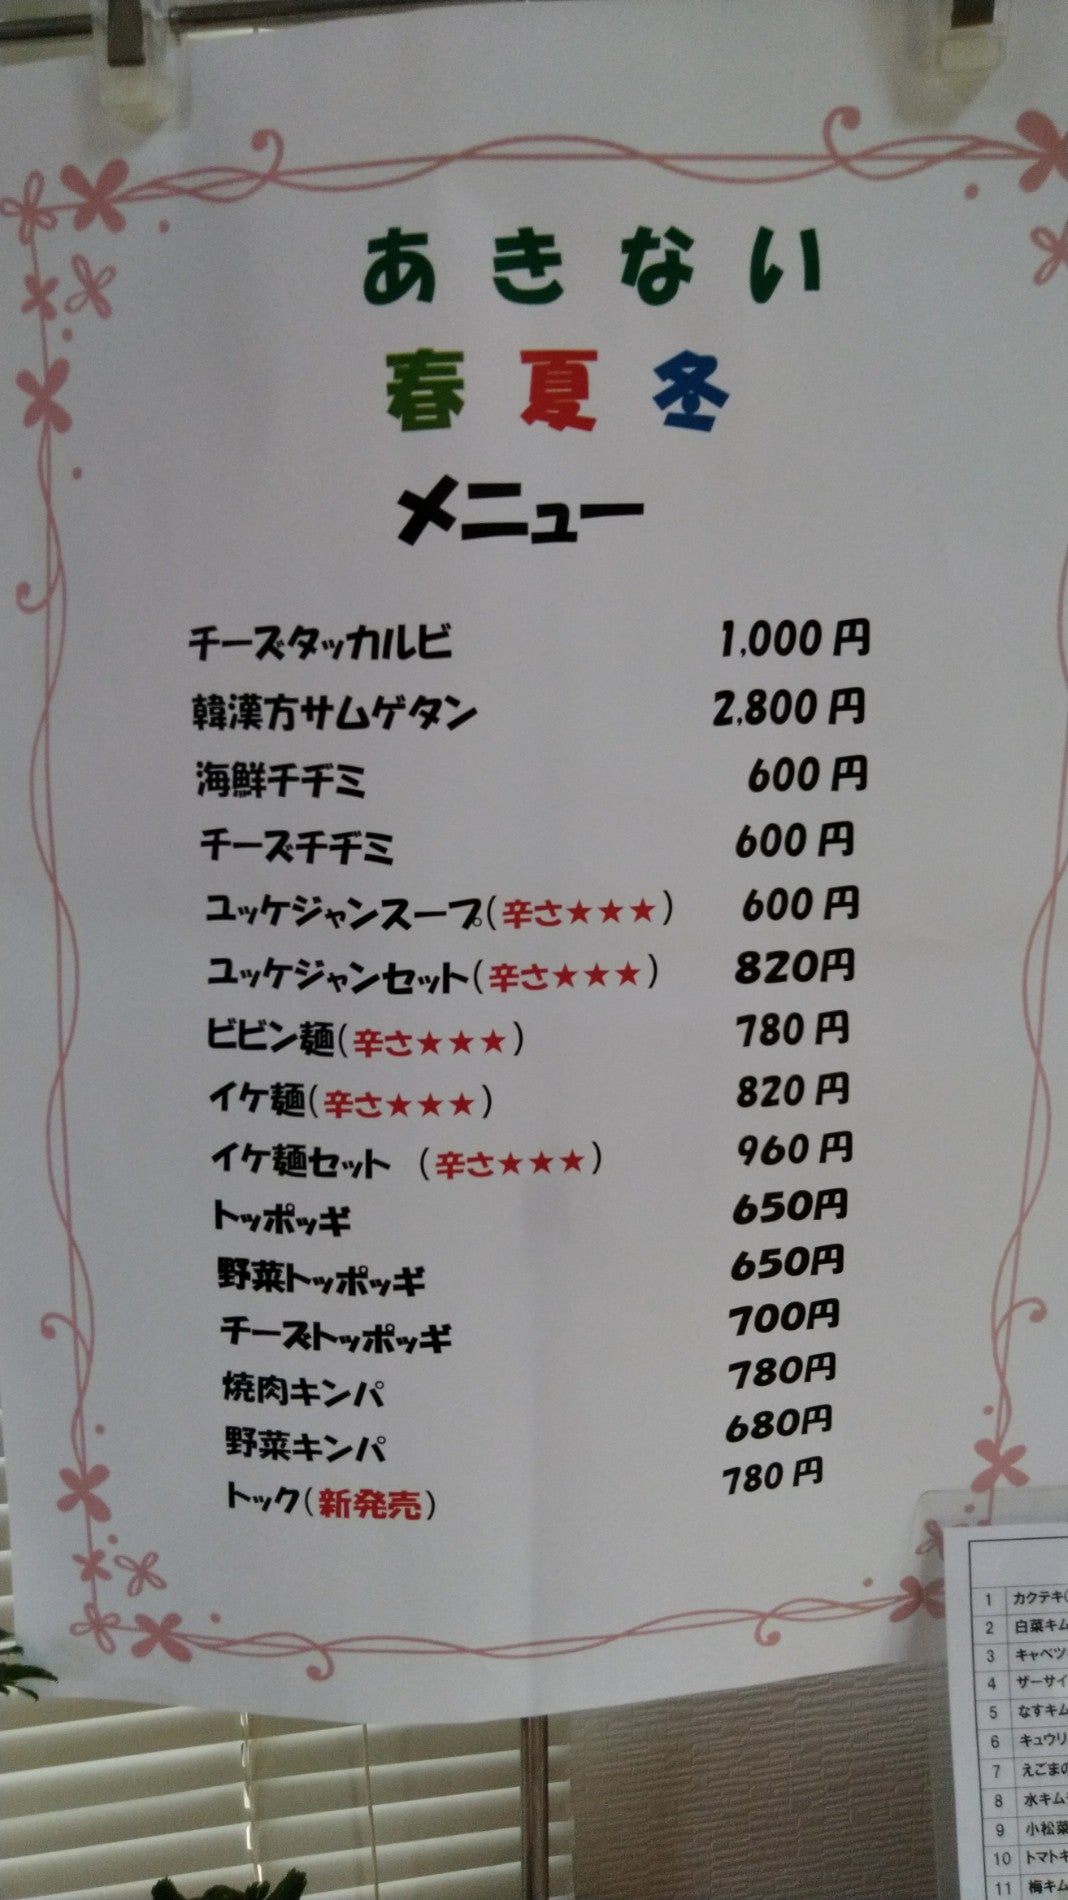 あきない
春夏冬
メニュー
チーズタッカルビ 1,000円
韓漢方サムゲタン 2,800円
海鮮チヂミ 600円
チーズチヂミ 600円
ユッケジャンスープ(辛さ★★★) 600円
ユッケジャンセット(辛さ★★★) 820円
ビビン麺(辛さ★★★) 780円
イケ麺(辛さ★★★) 820円
イケ麺セット (辛さ★★★) 960円
トッポッギ 650円
野菜トッポッギ 650円
チーズトッポッギ 700円
焼肉キンパ 780円
野菜キンパ 680円
トック(新発売) 780円
1 カクテキ(
2 白菜キム
3 キャベツ
4 ザーサイ
5 なすキム
6 キュウリ
7 えごまの
8 水キム
9 小松菜
10 トマトキ
11 梅キム